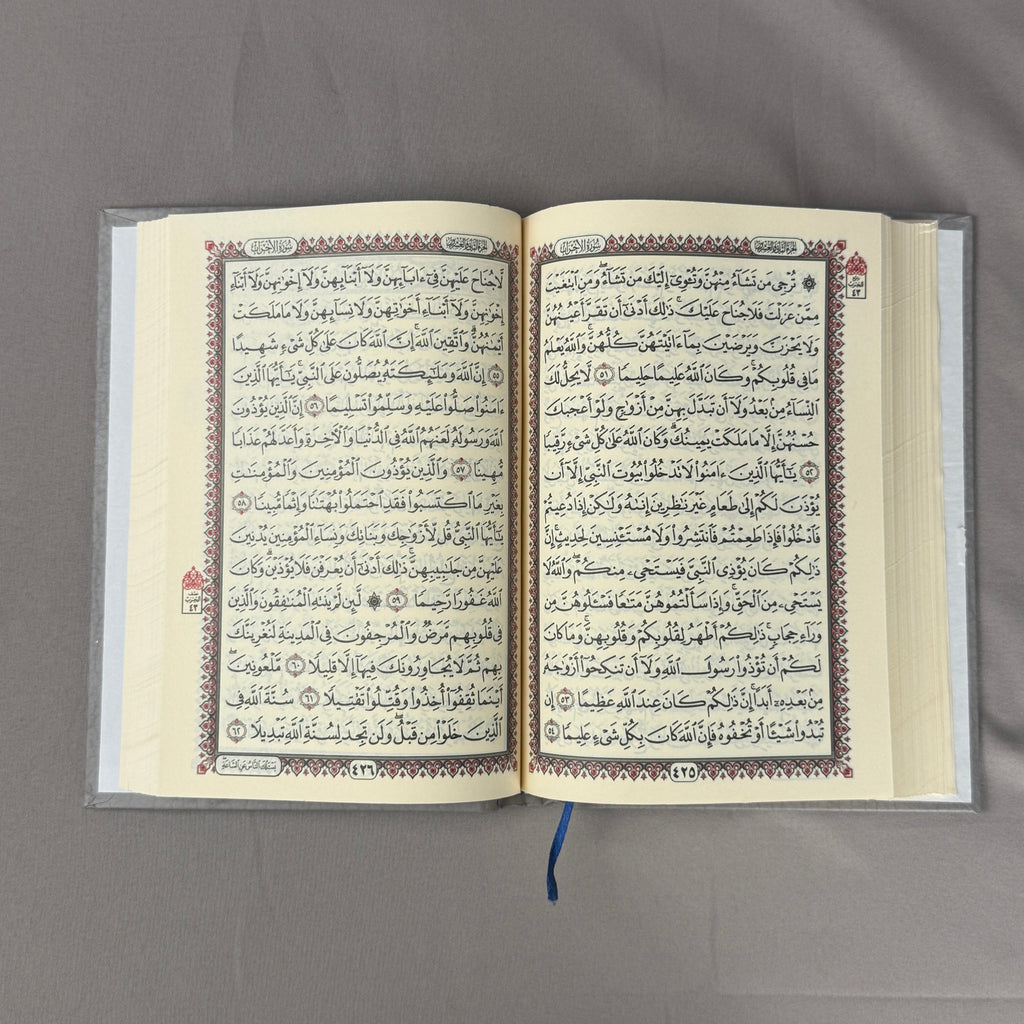 الجزء الثاني والعشرون سُورَةُ الأَحْزَابِ
۞ تُرْجِي مَن تَشَآءُ مِنْهُنَّ وَتُـْٔوِيٓ إِلَيْكَ مَن تَشَآءُۖ وَمَنِ ٱبْتَغَيْتَ
مِمَّنْ عَزَلْتَ فَلَا جُنَاحَ عَلَيْكَۚ ذَٰلِكَ أَدْنَىٰٓ أَن تَقَرَّ أَعْيُنُهُنَّ
وَلَا يَحْزَنَّ وَيَرْضَيْنَ بِمَآ ءَاتَيْتَهُنَّ كُلُّهُنَّۚ وَٱللَّهُ يَعْلَمُ
مَا فِي قُلُوبِكُمْۚ وَكَانَ ٱللَّهُ عَلِيمًا حَلِيمًا ٥١ لَّا يَحِلُّ لَكَ
ٱلنِّسَآءُ مِنۢ بَعْدُ وَلَآ أَن تَبَدَّلَ بِهِنَّ مِنْ أَزْوَٰجٍ وَلَوْ أَعْجَبَكَ
حُسْنُهُنَّ إِلَّا مَا مَلَكَتْ يَمِينُكَۗ وَكَانَ ٱللَّهُ عَلَىٰ كُلِّ شَيْءٍ رَّقِيبًا
٥٢ يَـٰٓأَيُّهَا ٱلَّذِينَ ءَامَنُوا۟ لَا تَدْخُلُوا۟ بُيُوتَ ٱلنَّبِيِّ إِلَّآ أَن
يُؤْذَنَ لَكُمْ إِلَىٰ طَعَامٍ غَيْرَ نَـٰظِرِينَ إِنَىٰهُ وَلَـٰكِنْ إِذَا دُعِيتُمْ
فَٱدْخُلُوا۟ فَإِذَا طَعِمْتُمْ فَٱنتَشِرُوا۟ وَلَا مُسْتَـْٔنِسِينَ لِحَدِيثٍۚ إِنَّ
ذَٰلِكُمْ كَانَ يُؤْذِي ٱلنَّبِيَّ فَيَسْتَحْيِۦ مِنكُمْۖ وَٱللَّهُ لَا
يَسْتَحْيِۦ مِنَ ٱلْحَقِّۚ وَإِذَا سَأَلْتُمُوهُنَّ مَتَـٰعًا فَسْـَٔلُوهُنَّ مِن
وَرَآءِ حِجَابٍۚ ذَٰلِكُمْ أَطْهَرُ لِقُلُوبِكُمْ وَقُلُوبِهِنَّۚ وَمَا كَانَ
لَكُمْ أَن تُؤْذُوا۟ رَسُولَ ٱللَّهِ وَلَآ أَن تَنكِحُوٓا۟ أَزْوَٰجَهُۥ
مِنۢ بَعْدِهِۦٓ أَبَدًاۚ إِنَّ ذَٰلِكُمْ كَانَ عِندَ ٱللَّهِ عَظِيمًا ٥٣ إِن
تُبْدُوا۟ شَيْـًٔا أَوْ تُخْفُوهُ فَإِنَّ ٱللَّهَ كَانَ بِكُلِّ شَيْءٍ عَلِيمًا ٥٤
ربع
الحزب
٤٣
٤٢٥
الجزء الثاني والعشرون سُورَةُ الأَحْزَابِ
لَّا جُنَاحَ عَلَيْهِنَّ فِيٓ ءَابَآئِهِنَّ وَلَآ أَبْنَآئِهِنَّ وَلَآ إِخْوَٰنِهِنَّ وَلَآ أَبْنَآءِ
إِخْوَٰنِهِنَّ وَلَآ أَبْنَآءِ أَخَوَٰتِهِنَّ وَلَا نِسَآئِهِنَّ وَلَا مَا مَلَكَتْ
أَيْمَـٰنُهُنَّۗ وَٱتَّقِينَ ٱللَّهَۚ إِنَّ ٱللَّهَ كَانَ عَلَىٰ كُلِّ شَيْءٍ شَهِيدًا
٥٥ إِنَّ ٱللَّهَ وَمَلَـٰٓئِكَتَهُۥ يُصَلُّونَ عَلَى ٱلنَّبِيِّۚ يَـٰٓأَيُّهَا ٱلَّذِينَ
ءَامَنُوا۟ صَلُّوا۟ عَلَيْهِ وَسَلِّمُوا۟ تَسْلِيمًا ٥٦ إِنَّ ٱلَّذِينَ يُؤْذُونَ
ٱللَّهَ وَرَسُولَهُۥ لَعَنَهُمُ ٱللَّهُ فِي ٱلدُّنْيَا وَٱلْـَٔاخِرَةِ وَأَعَدَّ لَهُمْ عَذَابًا
مُّهِينًا ٥٧ وَٱلَّذِينَ يُؤْذُونَ ٱلْمُؤْمِنِينَ وَٱلْمُؤْمِنَـٰتِ
بِغَيْرِ مَا ٱكْتَسَبُوا۟ فَقَدِ ٱحْتَمَلُوا۟ بُهْتَـٰنًا وَإِثْمًا مُّبِينًا ٥٨
يَـٰٓأَيُّهَا ٱلنَّبِيُّ قُل لِّأَزْوَٰجِكَ وَبَنَاتِكَ وَنِسَآءِ ٱلْمُؤْمِنِينَ يُدْنِينَ
عَلَيْهِنَّ مِن جَلَـٰبِيبِهِنَّۚ ذَٰلِكَ أَدْنَىٰٓ أَن يُعْرَفْنَ فَلَا يُؤْذَيْنَۗ وَكَانَ
ٱللَّهُ غَفُورًا رَّحِيمًا ٥٩ ۞ لَّئِن لَّمْ يَنتَهِ ٱلْمُنَـٰفِقُونَ وَٱلَّذِينَ
فِي قُلُوبِهِم مَّرَضٌ وَٱلْمُرْجِفُونَ فِي ٱلْمَدِينَةِ لَنُغْرِيَنَّكَ
بِهِمْ ثُمَّ لَا يُجَاوِرُونَكَ فِيهَآ إِلَّا قَلِيلًا ٦٠ مَّلْعُونِينَۖ
أَيْنَمَا ثُقِفُوٓا۟ أُخِذُوا۟ وَقُتِّلُوا۟ تَقْتِيلًا ٦١ سُنَّةَ ٱللَّهِ فِي
ٱلَّذِينَ خَلَوْا۟ مِن قَبْلُۖ وَلَن تَجِدَ لِسُنَّةِ ٱللَّهِ تَبْدِيلًا ٦٢
نصف
الحزب
٤٣
٤٢٦
يَسْـَٔلُكَ النَّاسُ عَنِ السَّاعَةِ